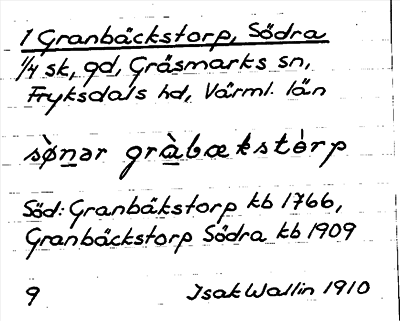 1 Granbäckstorp, Södra
1/4 sk, gd, Gräsmarks sn,
Fryksdals hd, Värml. län
sø̀nər gràbækstèrp
Söd: Granbäkstorp kb 1766,
Granbäckstorp Södra kb 1909
9 Isak Wallin 1910